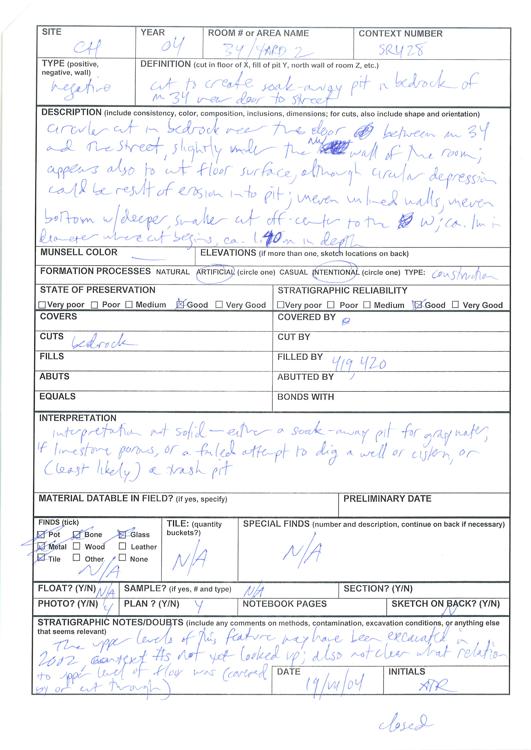 SITE CH
YEAR 04
ROOM # or AREA NAME 34/YARD 2
CONTEXT NUMBER SR428
TYPE (positive, negative, wall) negative
DEFINITION (cut in floor of X, fill of pit Y, north wall of room Z, etc.)
cut to create soak-away pit in bedrock of
rm 34 near door to street
DESCRIPTION (include consistency, color, composition, inclusions, dimensions; for cuts, also include shape and orientation)
circular cut in bedrock near the door between rm 34
and the street, slightly under the NW wall of the room;
appears also to cut floor surface, although circular depression
could be result of erosion into pit; uneven unlined walls, uneven
bottom w/deeper smaller cut off-center to the W; ca. 1m in
diameter where cut begins, ca. 1.40m in depth
MUNSELL COLOR
ELEVATIONS (if more than one, sketch locations on back)
FORMATION PROCESSES NATURAL ARTIFICIAL (circle one) CASUAL INTENTIONAL (circle one) TYPE: construction
STATE OF PRESERVATION
Very poor Poor Medium Good Very Good
STRATIGRAPHIC RELIABILITY
Very poor Poor Medium Good Very Good
COVERS
COVERED BY
CUTS bedrock
CUT BY
FILLS
FILLED BY 419, 420
ABUTS
ABUTTED BY
EQUALS
BONDS WITH
INTERPRETATION
interpretation not solid - either a soak-away pit for gray water,
if limestone porous, or a failed attempt to dig a well or cistern, or
(least likely) a trash pit
MATERIAL DATABLE IN FIELD? (if yes, specify)
PRELIMINARY DATE
FINDS (tick)
Pot Bone Glass
Metal Wood Leather
Tile Other None
N/A
TILE: (quantity buckets?)
N/A
SPECIAL FINDS (number and description, continue on back if necessary)
N/A
FLOAT? (Y/N) N/A
SAMPLE? (if yes, # and type) N/A
SECTION? (Y/N)
PHOTO? (Y/N) Y
PLAN ? (Y/N) Y
NOTEBOOK PAGES
SKETCH ON BACK? (Y/N) N
STRATIGRAPHIC NOTES/DOUBTS (include any comments on methods, contamination, excavation conditions, or anything else that seems relevant)
The upper levels of this feature may have been excavated in
2002 context #s not yet looked up; also not clear what relation
to upper level of floor was (covered
by or cut through)
DATE 19/VII/04
INITIALS ATR
closed